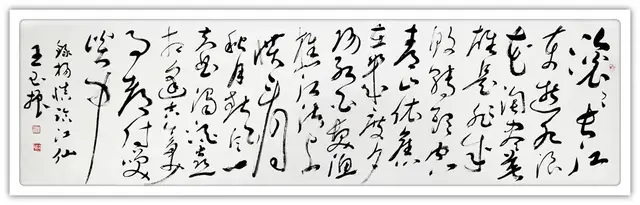 滚〻长江
东逝水浪
花淘尽英
雄是非成
败转头空
青山依旧
在几度夕
阳红白发渔
樵江渚上
惯看
秋月春风一
壶浊酒喜
相逢古今多少
事都付笑
谈中
录杨慎临江仙
王